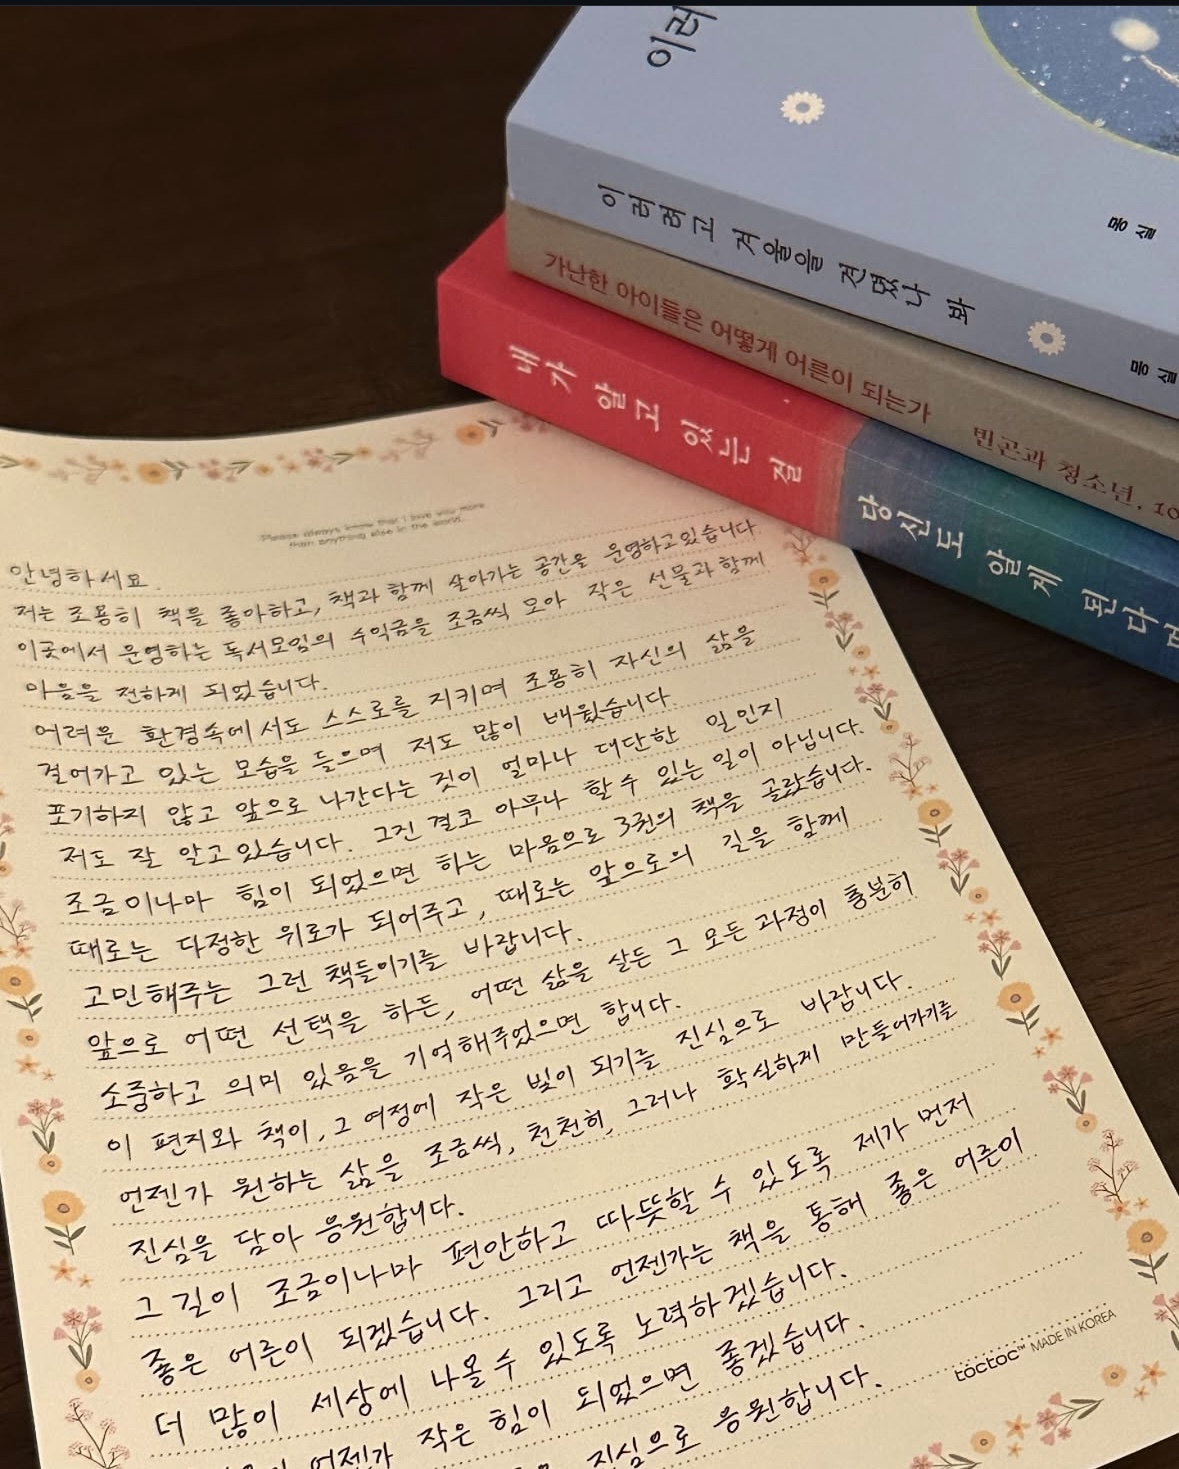 이러
몽실
이러려고 겨울을 견뎠나 봐
몽실
가난한 아이들은 어떻게 어른이 되는가 빈곤과 청소년, 10
내가 알고 있는 걸 당신도 알게 된다면
Please always know that I love you more
than anything else in the world.
안녕하세요.
저는 조용히 책을 좋아하고, 책과 함께 살아가는 공간을 운영하고있습니다.
이곳에서 운영하는 독서모임의 수익금을 조금씩 모아 작은 선물과 함께
마음을 전하게 되었습니다.
어려운 환경속에서도 스스로를 지키며 조용히 자신의 삶을
걸어가고 있는 모습을 들으며 저도 많이 배웠습니다.
포기하지 않고 앞으로 나간다는 것이 얼마나 대단한 일인지
저도 잘 알고있습니다. 그건 결코 아무나 할 수 있는 일이 아닙니다.
조금이나마 힘이 되었으면 하는 마음으로 3권의 책을 골랐습니다.
때로는 다정한 위로가 되어주고, 때로는 앞으로의 길을 함께
고민해주는 그런 책들이기를 바랍니다.
앞으로 어떤 선택을 하든, 어떤 삶을 살든 그 모든 과정이 충분히
소중하고 의미 있음을 기억해주었으면 합니다.
이 편지와 책이, 그 여정에 작은 빛이 되기를 진심으로 바랍니다.
언젠가 원하는 삶을 조금씩, 천천히, 그러나 확실하게 만들어가기를
진심을 담아 응원합니다.
그 길이 조금이나마 편안하고 따뜻할 수 있도록 제가 먼저
좋은 어른이 되겠습니다. 그리고 언젠가는 책을 통해 좋은 어른이
더 많이 세상에 나올 수 있도록 노력하겠습니다.
언젠가 작은 힘이 되었으면 좋겠습니다.
진심으로 응원합니다.
toctoc™ MADE IN KOREA